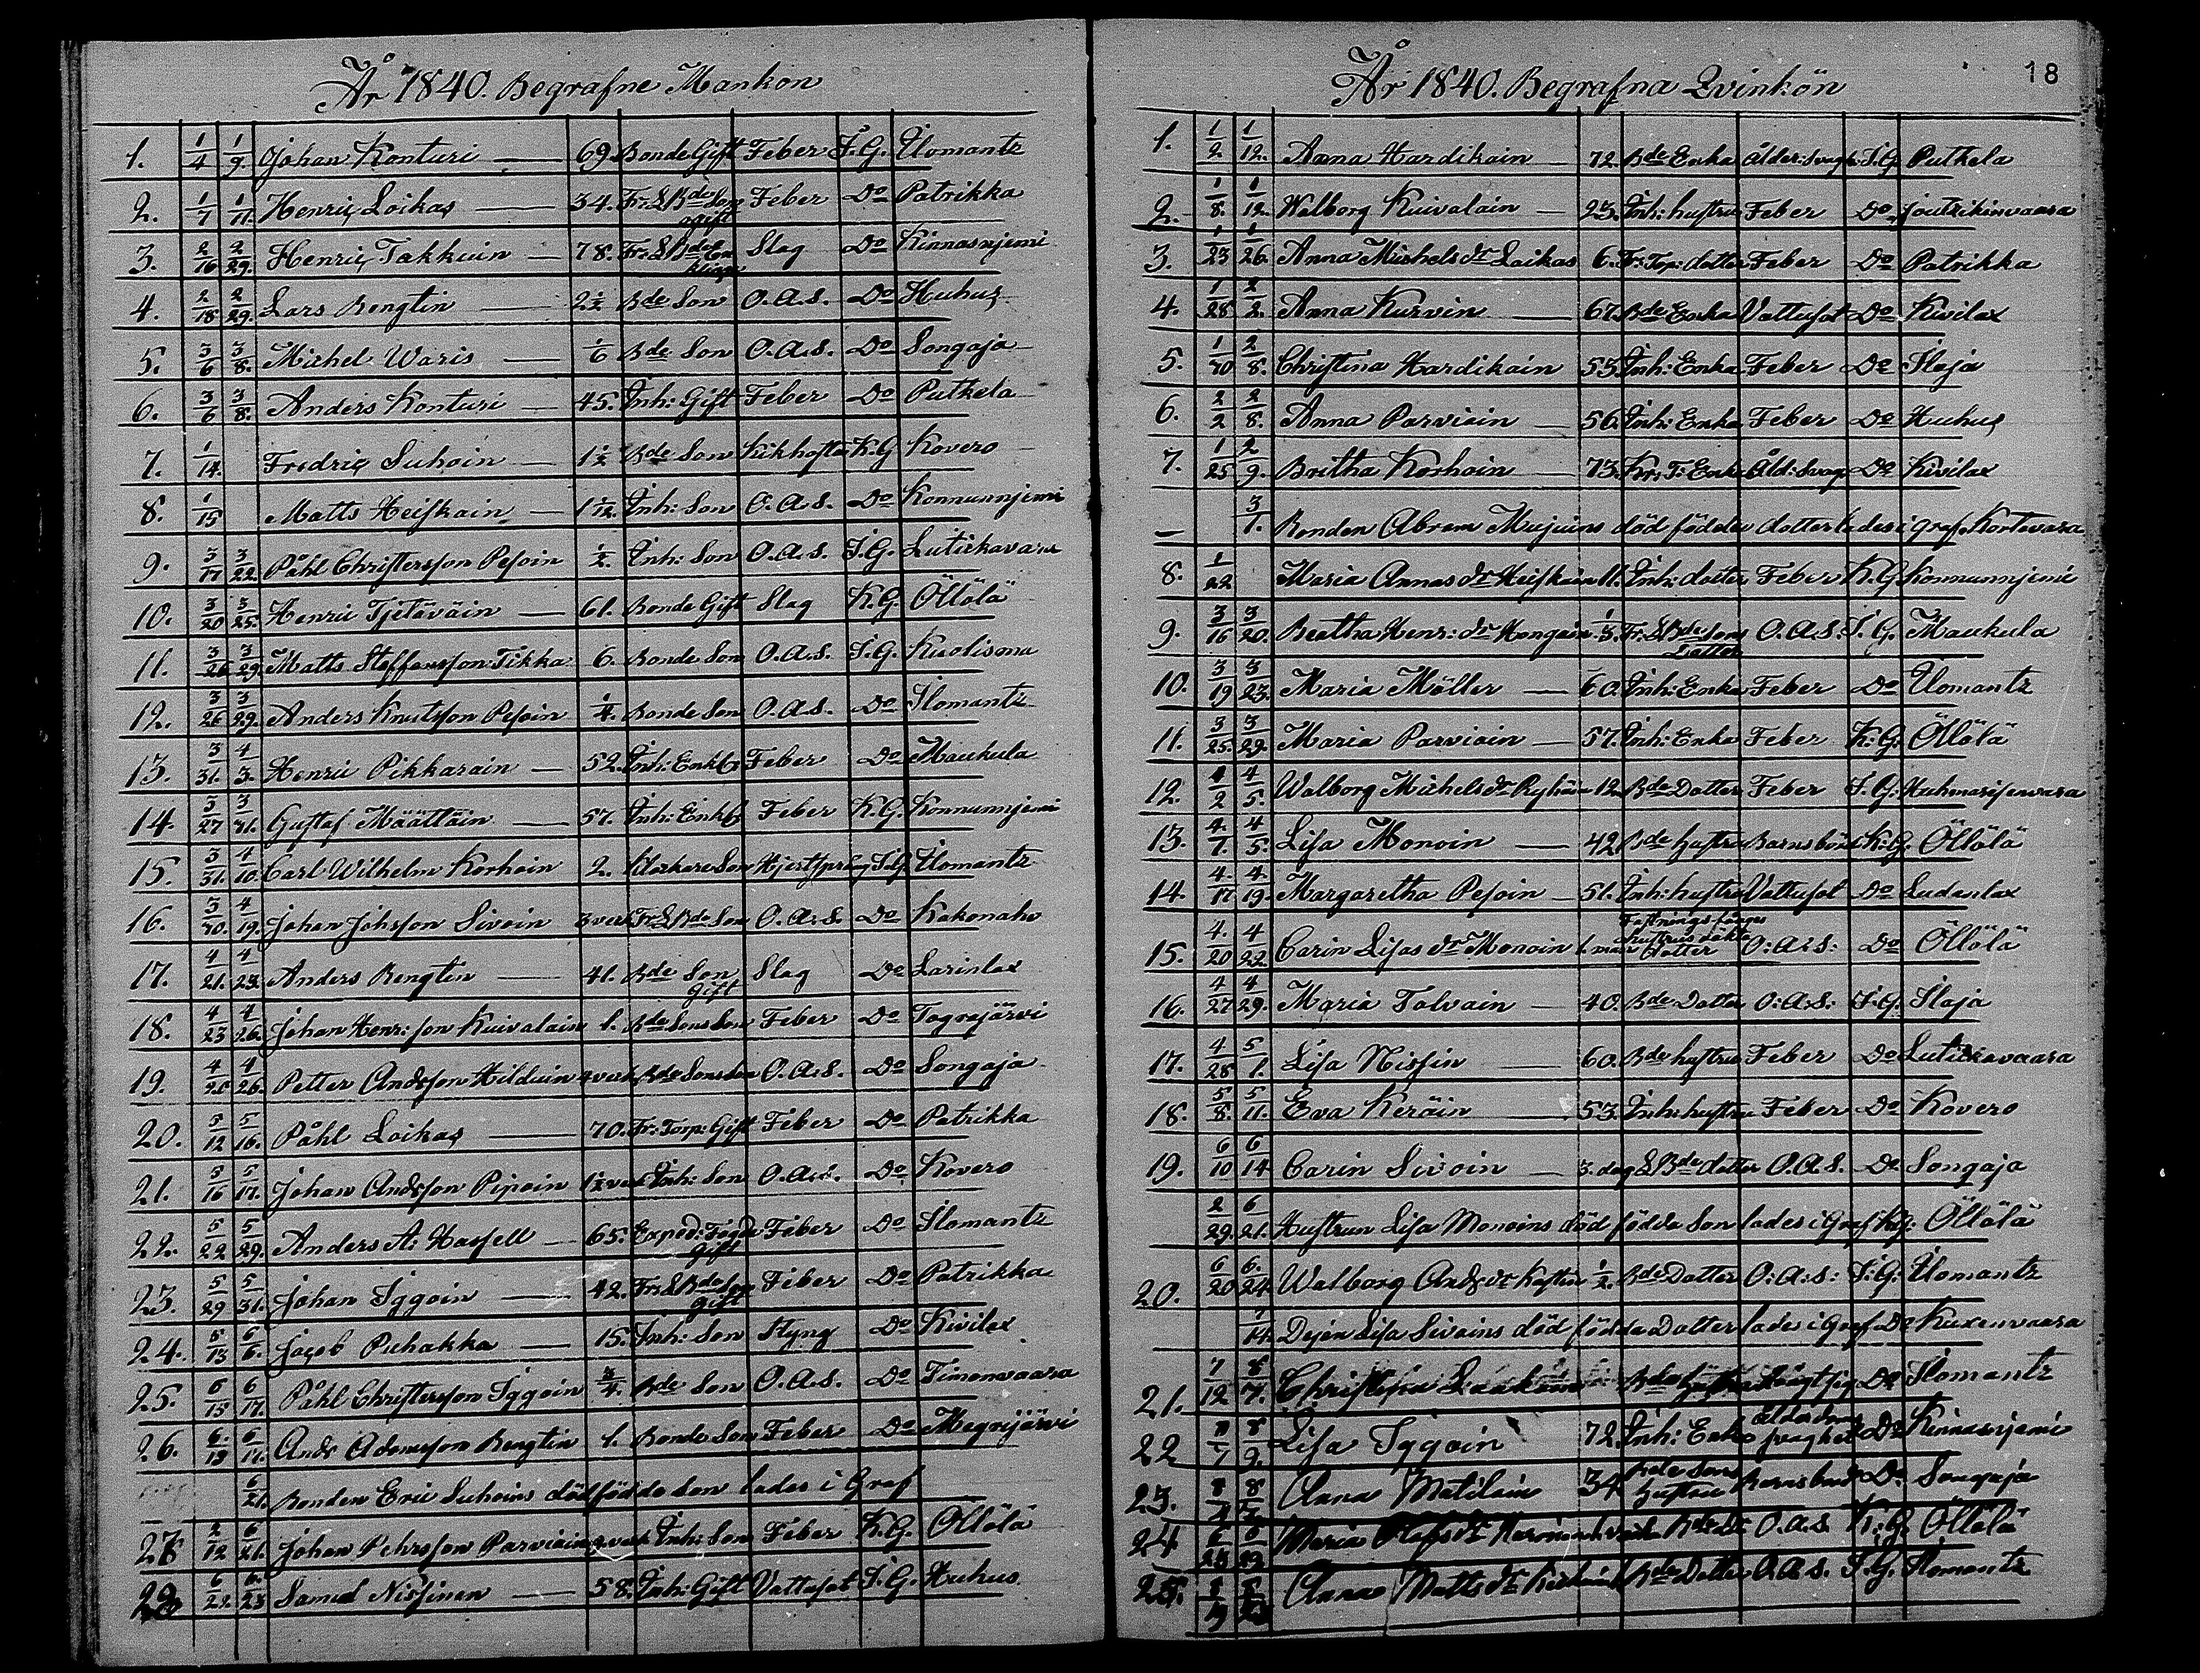 År 1840. Begrafne Mankön
1. 1/4 1/9. Johan Konturi — 69. Bonde Gift Feber I.G. Ilomantz
2. 1/7 1/11. Henric Loikas — 34. Fr: S Bde Son ogift Feber Do Patrikka
3. 2/16 2/29. Henric Takkuin — 78. Fr: S Bde Enkling Slag Do Kinnasnjemi
4. 2/18 2/29. Lars Bengtin — 2 1/2 Bde Son O.A.S. Do Huhus
5. 3/6 3/8. Michel Waris — 1/6 Bde Son O.A.S. Do Songaja
6. 3/6 3/8. Anders Konturi — 45. Inh: Gift Feber Do Putkela
7. 1/14. Fredric Suhoin — 1 1/2 Bde Son Kikhosta K.G Kovero
8. 1/15 Matts Heiskain — 1 1/12. Inh: Son O.A.S. Do Konnunnjemi
9. 3/17 3/22. Påhl Christersson Pesoin 1/2. Inh: Son O.A.S. I.G. Lutickavara
10. 3/20 3/25. Henric Tjetäväin — 61. Bonde Gift Slag K.G. Öllölä
11. 3/26 3/29. Matts Steffansson Tikka 6. Bonde Son O.A.S. I.G. Kuolisma
12. 3/26 3/29. Anders Knutsson Pesoin 1/4. Bonde Son O.A.S. Do Ilomantz
13. 3/31. 4/3. Henric Pikkarain — 52. Inh: Enkl Feber Do Maukula
14. 3/27 3/31. Gustaf Määttäin — 57. Inh: Enkl Feber K.G. Konnunnjemi
15. 3/31. 4/10. Carl Wilhelm Korhoin 2. Klockare Son Hjertsprång I.G. Ilomantz
16. 3/30. 4/19. Johan Johsson Sivoin 3 veck Fr: S Bde Son O.A.S. Do Kakonaho
17. 4/21. 4/23. Anders Bengten — 41. Bde Son Gift Slag Do Sarinlax
18. 4/23 4/26. Johan Henr: son Kuivalain 1. Bde Sons Son Feber Do Tograjärvi
19. 4/20 4/26. Petter Andsson Hilduin 4 veck Bde Sons Son O.A.S. Do Songaja
20. 5/12 5/16. Påhl Loikas — 70. Fr: Torp: Gift Feber Do Patrikka
21. 5/16 5/17. Johan Andsson Piipoin 1 1/2 veck Inh: Son O.A.S. Do Kovero
22. 5/22 5/29. Anders A: Hassell — 65. Exped: Fogde Gift Feber Do Ilomantz
23. 5/29 5/31. Johan Iggoin — 42. Fr: S Bde Son Gift Feber Do Patrikka
24. 5/13 6/6. Jacob Puhakka — 15. Inh: Son Styng Do Kivilax
25. 6/15 6/17. Påhl Christersson Iggoin 3/4. Bde Son O.A.S. Do Timonvaara
26. 6/13 6/14. Ands Adamsson Bengtin 1. Bonde Son Feber Do Megrijärvi
6/21. Bonden Eric Suhoins dödfödde Son lades i Graf
27 2/12 6/21. Johan Pehrsson Parviain veck Inh: Son Feber K.G. Öllölä
28 6/22. 6/23 Samuel Nissinen — 58. Inh: Gift Vattusot I.G. Huhus.
18
År 1840. Begrafna Qvinkön
1. 1/2. 1/12. Anna Hardikain — 72. Bde Enka Ålder: Svagh I.G Putkela
2. 1/8. 1/12. Walborg Kuivalain — 23. Inh: hustru Feber Do Joutzikinvaara
3. 1/23 1/26. Anna Michels dr Loikas 6. Fr: Torp: dotter Feber Do Patrikka
4. 1/28 2/2. Anna Kurvin — 67. Bde Enka Vattusot Do Kivilax
5. 1/30 2/8. Christina Hardikain 55. Inh: Enka Feber Do Ilaja
6. 2/2 2/8. Anna Parviain — 56. Inh: Enka Feber Do Huhus
7. 1/25 2/9. Britha Korhoin — 73. Kr: T: Enka Åld: Svag Do Kivilax
— 3/1. Bonden Abram Mujuins död födda dotter lades i graf. Kortevara
8. 1/22. Maria Annas dr Heiskain 11. Inh: dotter Feber K.G. Konnunnjemi
9. 3/16 3/20. Beatha Henr: dr Hongain 1/3. Fr: S Bde Sons Dotter O.A.S. I.G. Maukula
10. 3/19 3/23. Maria Möller — 60. Inh: Enka Feber Do Ilomantz
11. 3/25. 3/29. Maria Parviain — 57. Inh: Enka Feber K:G: Öllölä
12. 4/2 4/5. Walborg Michels dr Ryhäin 12. Bde Dotter Feber I.G: Huhmarisevaara
13. 4/1. 4/5. Lisa Monoin — 42. Bde hustru Barnsbörd K:G. Öllölä
14. 4/17 4/19. Margaretha Pesoin — 51. Inh: hustru Vattusot Do Ludanlax
15. 4/20 4/22. Carin Lisas dr Monoin 1. mån Fästnings fånges hustrus oäkta dotter O:A:S: Do Öllölä
16. 4/27 4/29. Maria Tolvain — 40. Bde Dotter O:A:S: I.G: Ilaja
17. 4/28 5/1. Lisa Nissin — 60. Bde hustru Feber Do Lutickavaara
18. 5/8. 5/11. Eva Keräin — 53. Inh: hustru Feber Do Kovero
19. 6/10 6/14 Carin Sivoin — 3. dag S Bde dotter O.A.S. Do Songaja
2/29. 6/21. Hustrun Lisa Monoins död födda Son lades i Graf K:g: Öllölä
20. 6/20 6/24. Walborg Ands dr 1/2. Bde Dotter O:A:S: I:G: Ilomantz
7/14. Dejan Lisa Sivoins död födda Dotter lades i Graf Do Kuxenvaara
21. 7/12 8/7. Christina Bde hustru Do Ilomantz
22 8/7 8/9. Lisa Iggoin 72. Inh: Enka Ålderdoms svaghet Do Kinnasnjemi
23. Anna Matilain 34 Bde Sons hustru Barnsbörd Do. Songaja
24. Maria Olofs dr O.A.S. K:G. Öllölä
25. Anna Matts dr Bde Dotter O.A.S. I.G. Ilomantz